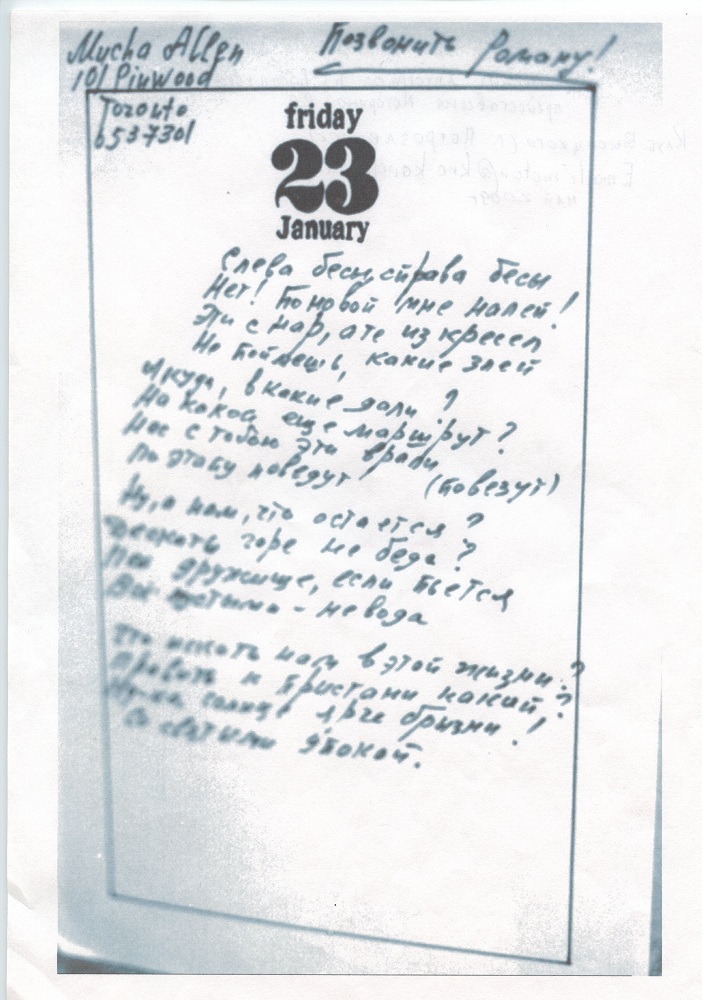 Mucha Allen
101 Pinwood
Toronto
6537301
Позвонить Роману!
friday
23
January
Слева бесы, справа бесы
Нет! По новой мне налей!
Эти с нар, а те из кресел
Не поймёшь, какие злей
И куда, в какие дали?
На какой еще маршрут?
Нас с тобою эти врали
По этапу поведут (повезут)
Ну, а нам, что остается?
Дескать горе не беда?
Пей дружище, если пьется
Все пустыми - не вода
Что искать нам в этой жизни?
Править к пристани какой?
Ну-ка солнце ярче брызни!
Со святыми упокой.